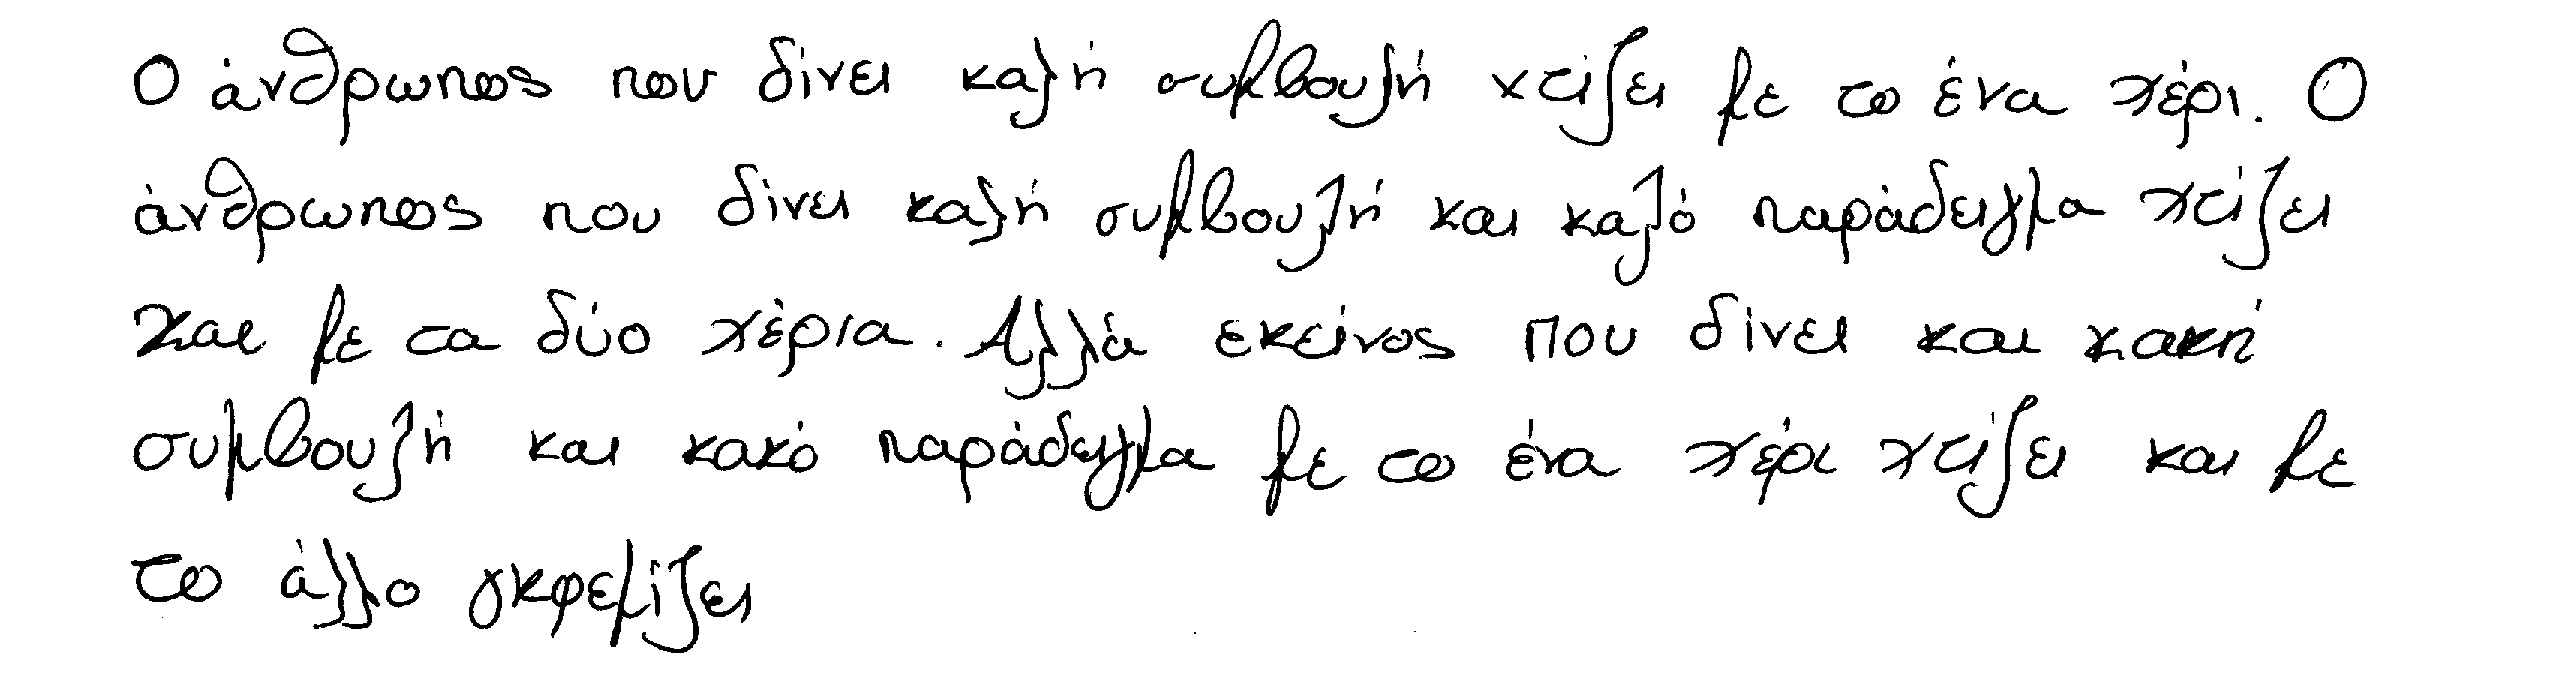 Ο άνθρωπος που δίνει καλή συμβουλή χτίζει με το ένα χέρι. Ο
άνθρωπος που δίνει καλή συμβουλή και καλό παράδειγμα χτίζει
και με τα δύο χέρια. Αλλά εκείνος που δίνει και κακή
συμβουλή και κακό παράδειγμα με το ένα χέρι χτίζει και με
το άλλο γκρεμίζει